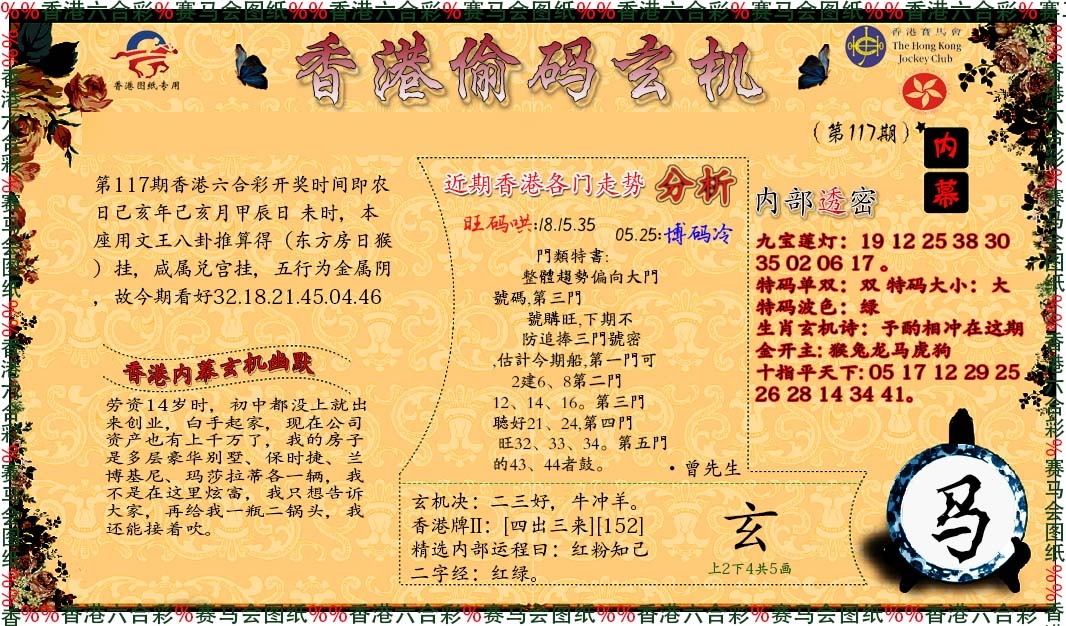 %%香港六合彩%赛马会图纸%%香港六合彩%赛马会图纸%%香港六合彩%赛马会图纸%%香港六合彩%赛马会图纸%%香港六合彩%赛
香港图纸专用
香港偷码玄机
香港賽馬會
The Hong Kong
Jockey Club
(第117期)
内
幕
第117期香港六合彩开奖时间即农
日己亥年己亥月甲辰日 未时，本
座用文王八卦推算得（东方房日猴
）挂，咸属兑宫挂，五行为金属阴
，故今期看好32.18.21.45.04.46
香港内幕玄机幽默
劳资14岁时，初中都没上就出
来创业，白手起家，现在公司
资产也有上千万了，我的房子
是多层豪华别墅、保时捷、兰
博基尼、玛莎拉蒂各一辆，我
不是在这里炫富，我只想告诉
大家，再给我一瓶二锅头，我
还能接着吹。
近期香港各门走势 分析
旺码哄:18.15.35
05.25:博码冷
門類特書:
整體趨勢偏向大門
號碼,第三門
號購旺,下期不
防追捧三門號密
,估計今期船,第一門可
2建6、8第二門
12、14、16。第三門
聽好21、24,第四門
旺32、33、34。第五門
的43、44者鼓。
·曾先生
玄机决：二三好，牛冲羊。
香港牌II：[四出三来][152]
精选内部运程曰：红粉知己
二字经：红绿。
玄
上2下4共5画
内部透密
九宝莲灯：19 12 25 38 30
35 02 06 17 。
特码单双：双 特码大小：大
特码波色：绿
生肖玄机诗：予酌相冲在这期
金开主: 猴兔龙马虎狗
十指平天下: 05 17 12 29 25
26 28 14 34 41。
马
香%%香港六合彩%赛马会图纸%%香港六合彩%赛马会图纸%%香港六合彩%赛马会图纸%%香港六合彩%赛马会图纸%%香港六合彩%